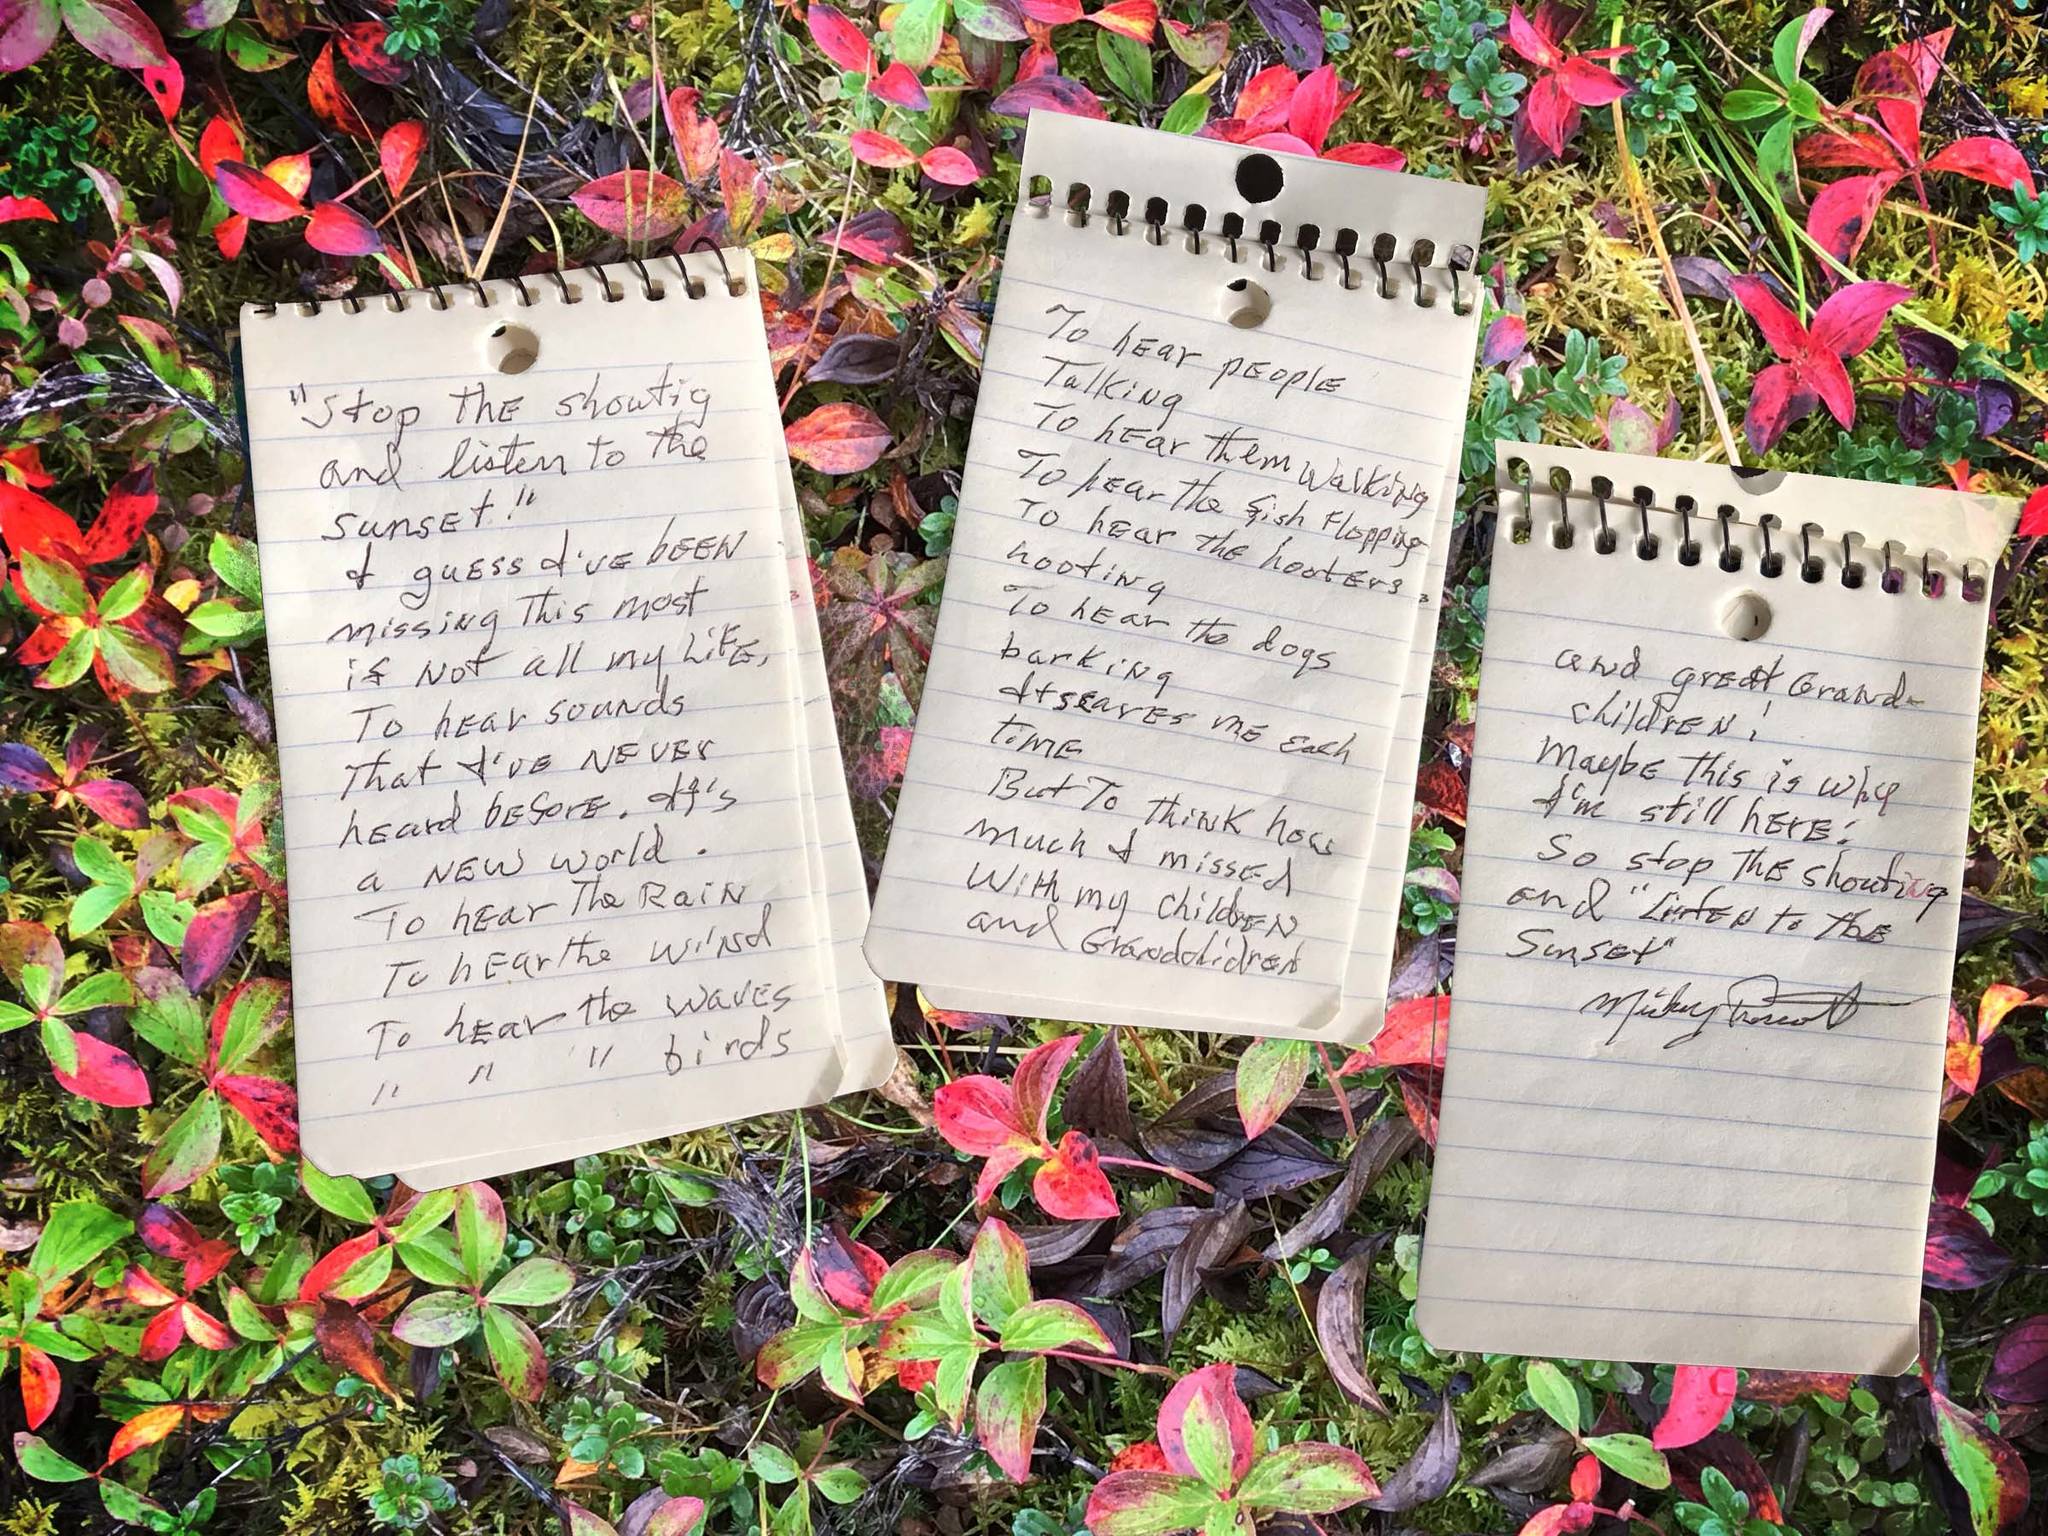 "Stop the shoutig
and listen to the
sunset!"
I guess I've been
missing this most
if not all my life,
To hear sounds
that I've never
heard before. It's
a new world.
To hear the Rain
To hear the wind
To hear the waves
" " " birds
To hear people
Talking
To hear them walking
To hear the fish flopping
To hear the hooters
hooting
To hear the dogs
barking
It scares me each
time
But to think how
much I missed
With my children
and Grandchidren
and great Grand-
children!
Maybe this is why
I'm still here!
So stop the shouting
and "Listen to the
Sunset"
Mickey Prescott